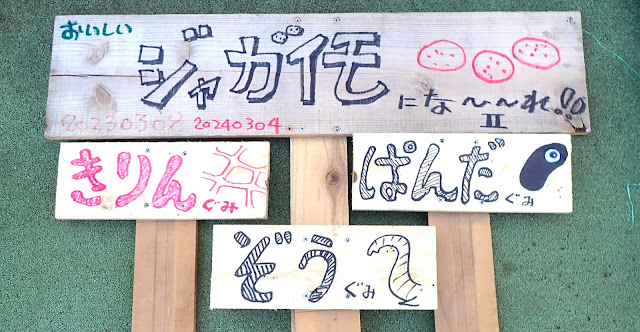 おいしい
ジャガイモ
にな〜〜れ!!
II
20230302 20240304
きりんぐみ
ぱんだぐみ
ぞうぐみ